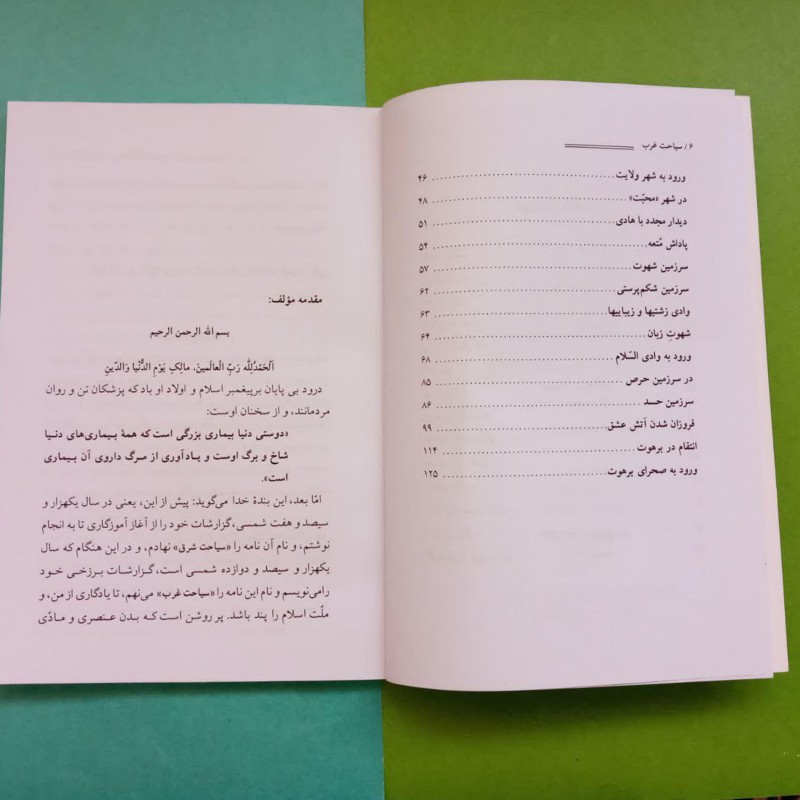 ۶ / سیاحت غرب
ورود به شهر ولایت ........ ۴۶
در شهر «محبّت» ........ ۴۸
دیدار مجدد با هادی ........ ۵۱
پاداش مُتعه ........ ۵۴
سرزمین شهوت ........ ۵۷
سرزمین شکم‌پرستی ........ ۶۲
وادی زشتیها و زیباییها ........ ۶۳
شهوتِ زبان ........ ۶۴
ورود به وادی السّلام ........ ۶۸
در سرزمین حرص ........ ۸۵
سرزمین حسد ........ ۸۶
فروزان شدن آتش عشق ........ ۹۹
انتقام در برهوت ........ ۱۱۴
ورود به صحرای برهوت ........ ۱۲۵
مقدمه مؤلف:
بسم الله الرحمن الرحیم
اَلْحَمْدُلِلّٰه رَبِّ الْعالَمینَ، مالِکِ یَوْمِ الدُّنْیا وَالدّینِ
درود بی پایان برپیغمبر اسلام و اولاد او باد که پزشکان تن و روان
مردمانند، و از سخنان اوست:
«دوستی دنیا بیماری بزرگی است که همهٔ بیماری‌های دنیا
شاخ و برگ اوست و یادآوری از مرگ داروی آن بیماری
است».
امّا بعد، این بندهٔ خدا می‌گوید: پیش از این، یعنی در سال یکهزار و
سیصد و هفت شمسی،گزارشات خود را از آغاز آموزگاری تا به انجام
نوشتم، و نام آن نامه را «سیاحت شرق» نهادم، و در این هنگام که سال
یکهزار و سیصد و دوازده شمسی است،گزارشات برزخی خود
رامی‌نویسم و نام این نامه را «سیاحت غرب» می‌نهم، تا یادگاری از من، و
ملّت اسلام را پند باشد. پر روشن است که بدن عنصری و مادّی